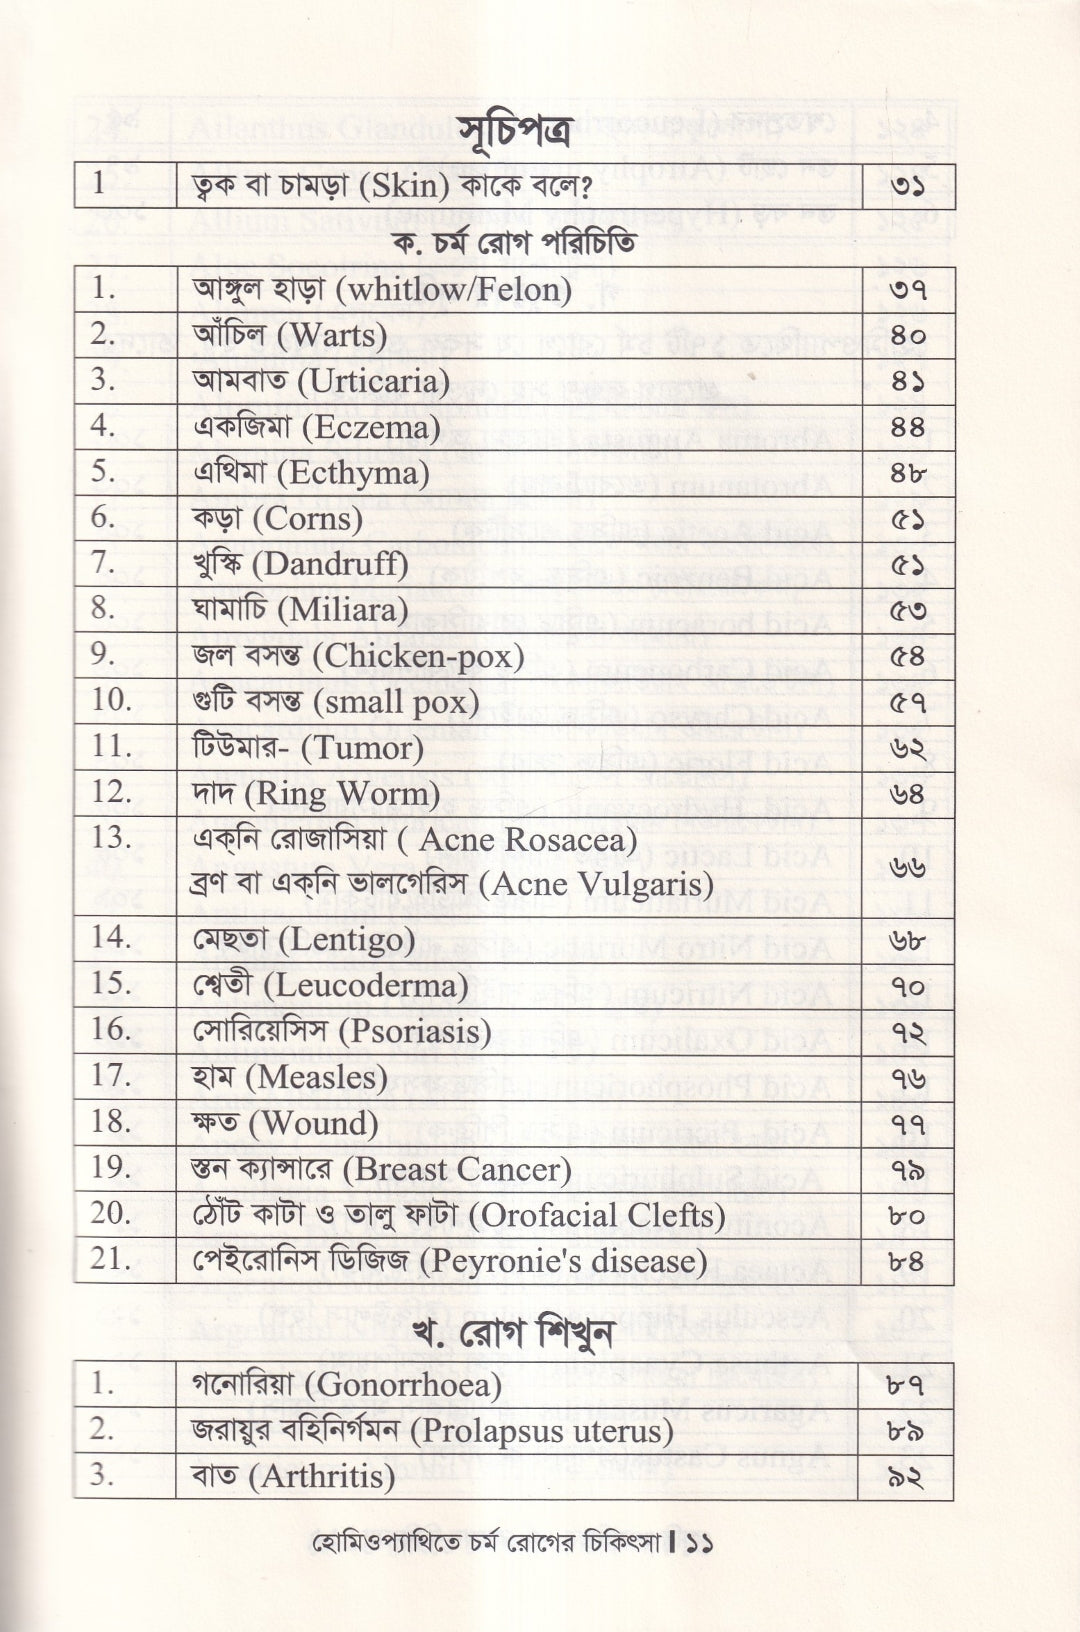 সূচিপত্র
1 ত্বক বা চামড়া (Skin) কাকে বলে? ৩১
ক. চর্ম রোগ পরিচিতি
1. আঙ্গুল হাড়া (whitlow/Felon) ৩৭
2. আঁচিল (Warts) ৪০
3. আমবাত (Urticaria) ৪১
4. একজিমা (Eczema) ৪৪
5. এথিমা (Ecthyma) ৪৮
6. কড়া (Corns) ৫১
7. খুস্কি (Dandruff) ৫১
8. ঘামাচি (Miliara) ৫৩
9. জল বসন্ত (Chicken-pox) ৫৪
10. গুটি বসন্ত (small pox) ৫৭
11. টিউমার- (Tumor) ৬২
12. দাদ (Ring Worm) ৬৪
13. এক্‌নি রোজাসিয়া ( Acne Rosacea)
ব্রণ বা এক্‌নি ভালগেরিস (Acne Vulgaris) ৬৬
14. মেছতা (Lentigo) ৬৮
15. শ্বেতী (Leucoderma) ৭০
16. সোরিয়েসিস (Psoriasis) ৭২
17. হাম (Measles) ৭৬
18. ক্ষত (Wound) ৭৭
19. স্তন ক্যান্সারে (Breast Cancer) ৭৯
20. ঠোঁট কাটা ও তালু ফাটা (Orofacial Clefts) ৮০
21. পেইরোনিস ডিজিজ (Peyronie's disease) ৮৪
খ. রোগ শিখুন
1. গনোরিয়া (Gonorrhoea) ৮৭
2. জরায়ুর বহির্নিগমন (Prolapsus uterus) ৮৯
3. বাত (Arthritis) ৯২
হোমিওপ্যাথিতে চর্ম রোগের চিকিৎসা | ১১